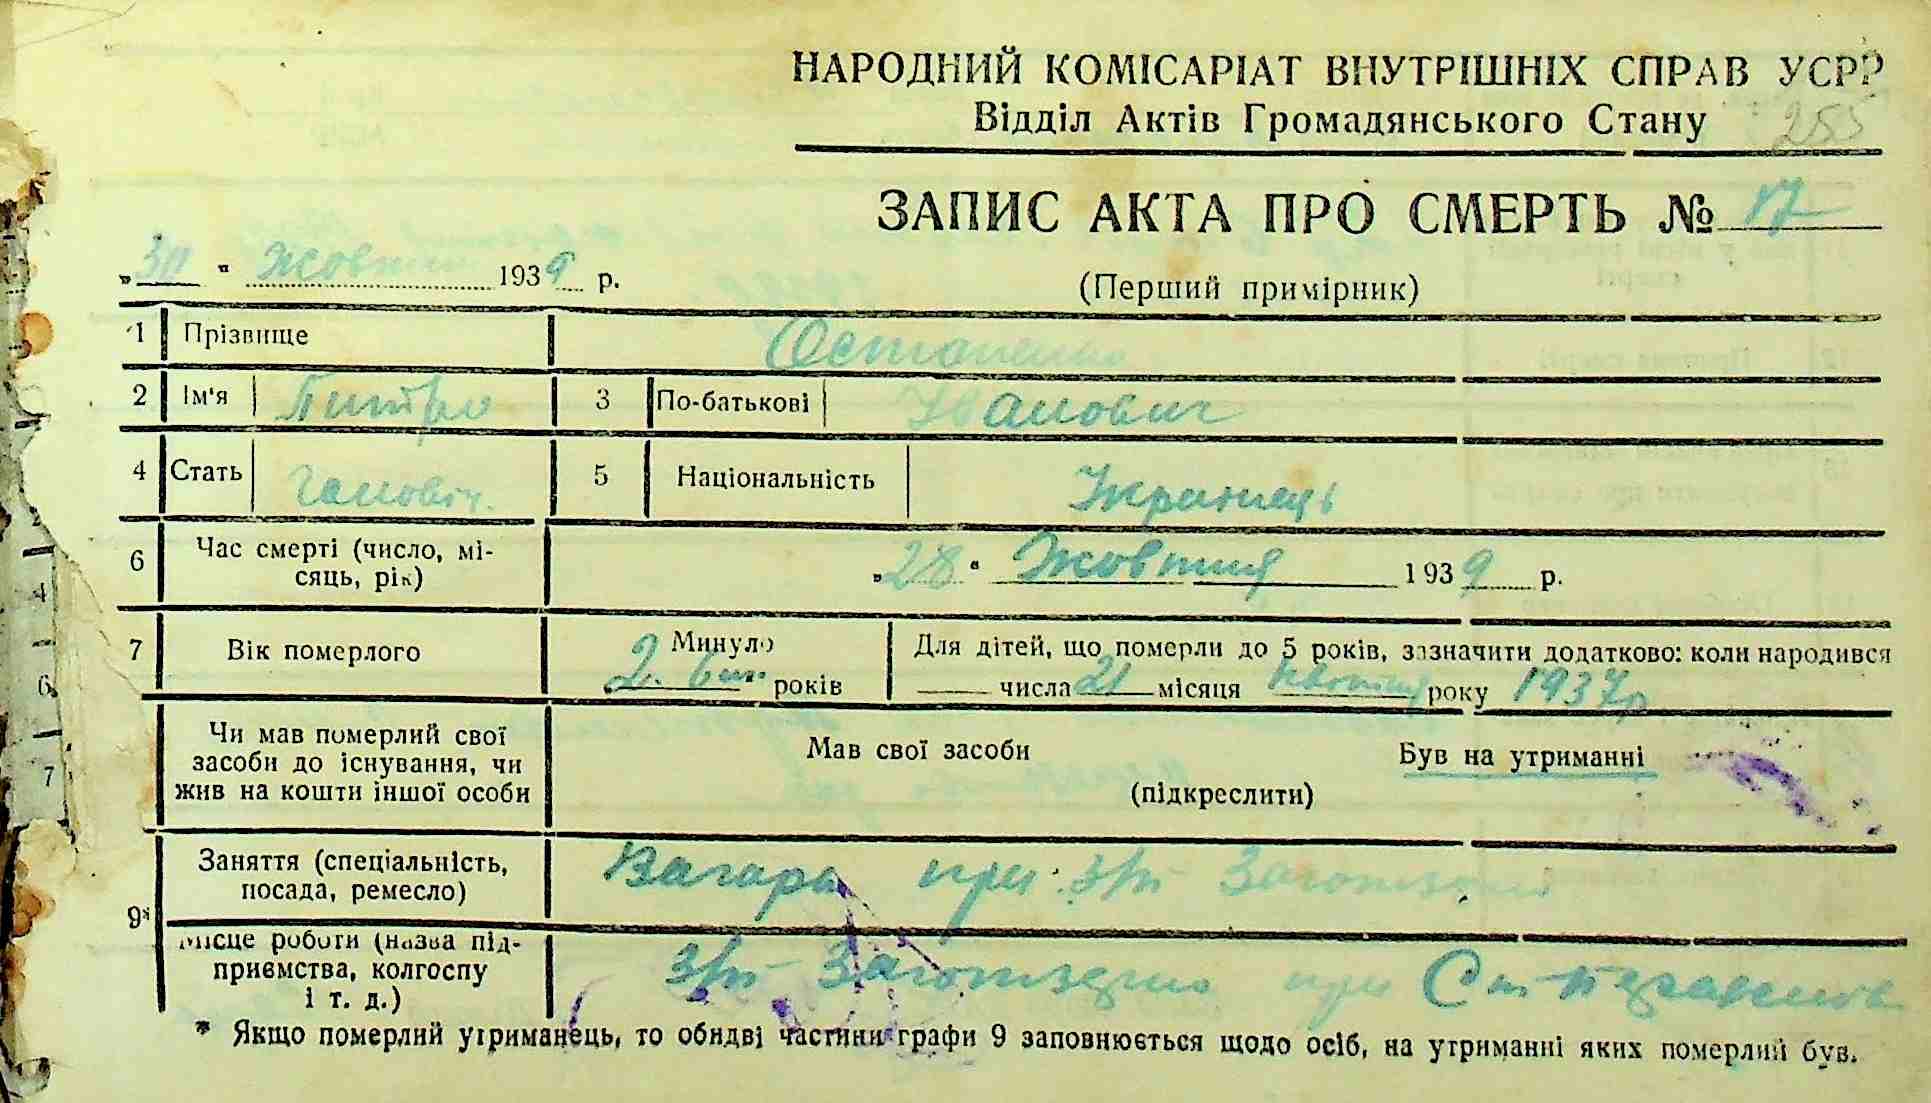 НАРОДНИЙ КОМІСАРІАТ ВНУТРІШНІХ СПРАВ УСРР
Відділ Актів Громадянського Стану 255
ЗАПИС АКТА ПРО СМЕРТЬ № 17
„ “ Жовтня 1939 р.
(Перший примірник)
1 Прізвище Остапенко
2 Ім'я Питро 3 По-батькові Іванович
4 Стать 5 Національність Українець
6 Час смерті (число, мі-
сяць, рік) „28“ Жовтня 1939 р.
7 Вік померлого 2. 6 м. Минуло років Для дітей, що померли до 5 років, зазначити додатково: коли народився
числа 21 місяця року 1937 р
Чи мав померлий свої
засоби до існування, чи
жив на кошти іншої особи
Мав свої засоби Був на утриманні
(підкреслити)
9* Заняття (спеціальність,
посада, ремесло) Вагарь при з/п Заготзерно
Місце роботи (назва під-
приємства, колгоспу
і т. д.) з/п Заготзерно при Ст.
* Якщо померлий утриманець, то обидві частини графи 9 заповнюється щодо осіб, на утриманні яких померлий був.